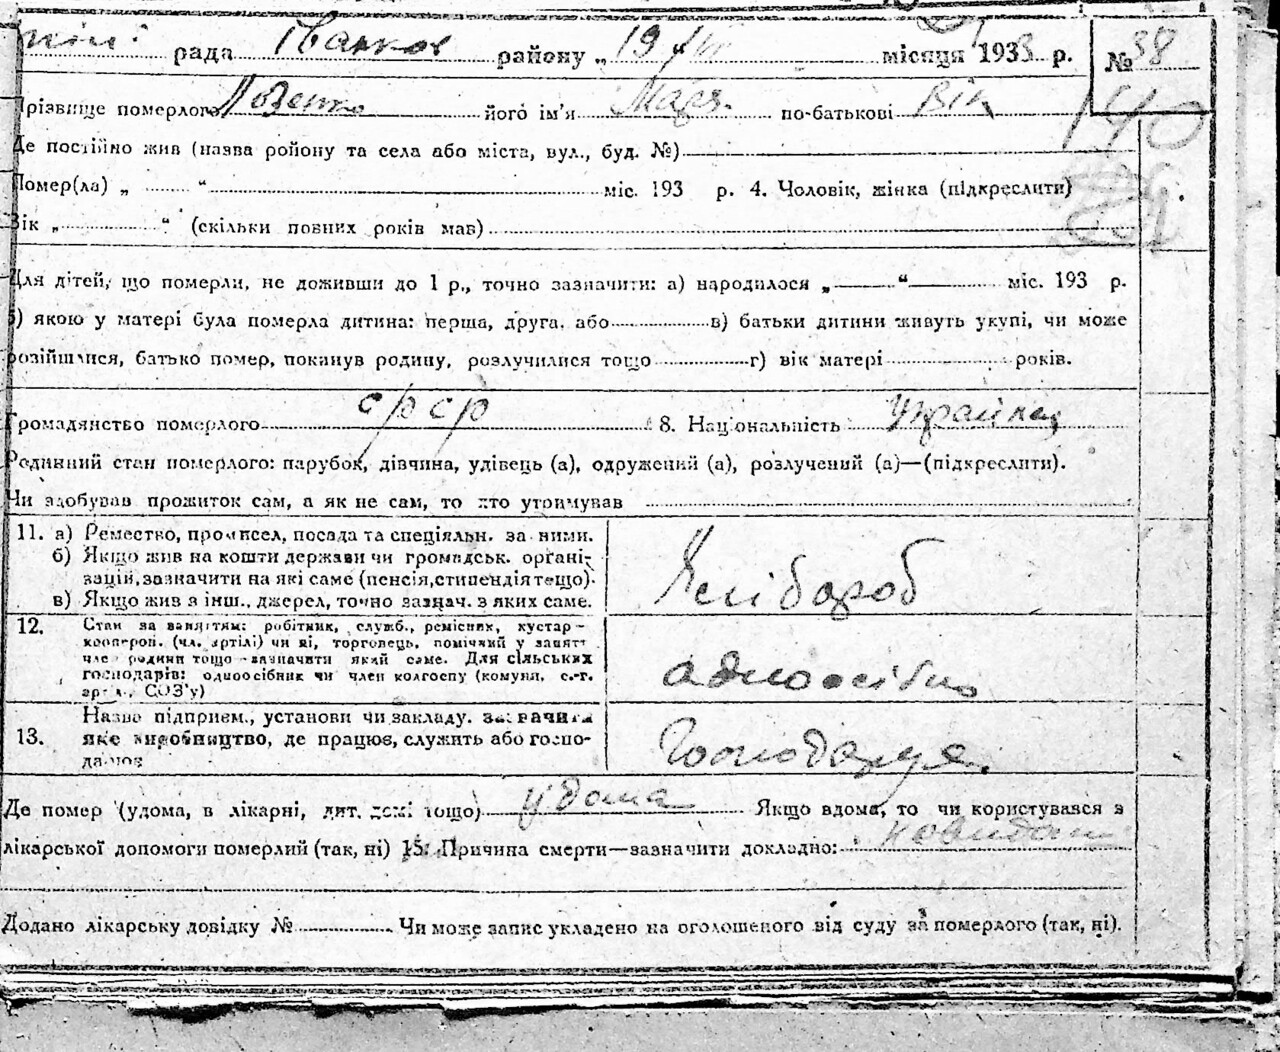 рада Іванков району „19 місяця 1933 р. № 38
Прізвище померлого його ім'я Мар. по-батькові Вік
140
Де постійно жив (назва ройону та села або міста, вул., буд. №)
Помер(ла) „ “ міс. 193 р. 4. Чоловік, жінка (підкреслити)
Вік „ “ (скільки повних років мав)
Для дітей, що померли, не доживши до 1 р., точно зазначити: а) народилося „ “ міс. 193 р.
б) якою у матері була померла дитина: перша, друга, або в) батьки дитини живуть укупі, чи може
розійшлися, батько помер, покинув родину, розлучилися тощо г) вік матері років.
Громадянство померлого срср 8. Національність Українец
Родинний стан померлого: парубок, дівчина, удівець (а), одружений (а), розлучений (а)—(підкреслити).
Чи здобував прожиток сам, а як не сам, то хто утримував
11. а) Ремество, промисел, посада та спеціяльн. за ними.
б) Якщо жив на кошти держави чи громадськ. органі-
зацій, зазначити на які саме (пенсія, стипендія тощо).
в) Якщо жив з інш., джерел, точно зазнач. з яких саме.
Хлібороб
12. Стан за заняттям: робітник, служб., ремісник, кустар-
кооперов. (чл. артілі) чи ні, торговець, помічний у занятт
член родини тощо зазначити який саме. Для сільських
господарів: одноосібник чи член колгоспу (комуни, с.-г.
арт., СОЗ'у)
одноосібно
13. Назва підприєм., установи чи закладу. зазначити
яке виробництво, де працює, служить або госпо-
дарює
Господарця.
Де помер (удома, в лікарні, дит. домі тощо) удома Якщо вдома, то чи користувався з
лікарської допомоги померлий (так, ні) 15. Причина смерти—зазначити докладно: невидом
Додано лікарську довідку № Чи може запис укладено на оголошеного від суду за померлого (так, ні).